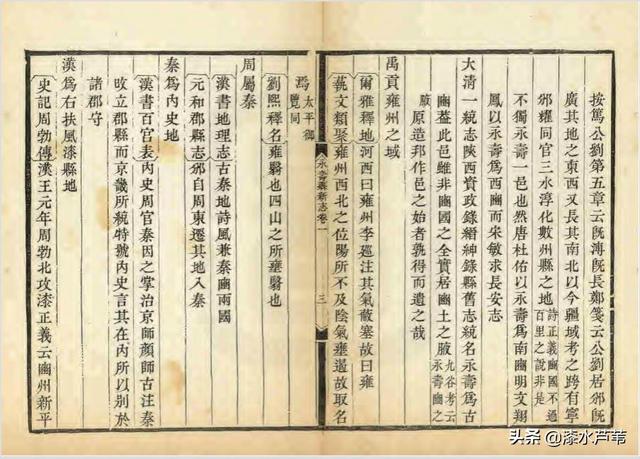 按篤公劉第五章云旣溥旣長鄭箋云公劉居邠旣
廣其地之東西又長其南北以今疆域考之跨有寧
邠耀同官三水淳化數州縣之地詩正義豳國不過
百里之說非是
不獨永壽一邑也然唐杜佑以永壽爲南豳明文翔
鳳以永壽爲西豳而宋敏求長安志
大清一統志陝西資政錄縉紳錄縣舊志統名永壽爲古
豳蓋此邑雖非豳國之全實居豳土之腋九谷考云
永壽豳之
腋
原造邦作邑之始者孰得而遺之哉
禹貢雍州之域
爾雅釋地河西曰雍州李巡注其氣蔽塞故曰雍
藝文類聚雍州西北之位陽所不及陰氣壅遏故取名
永壽縣新志卷一
三
焉太平御
覽同
劉熙釋名雍翳也四山之所壅翳也
周屬秦
漢書地理志古秦地詩風兼秦豳兩國
元和郡縣志邠自周東遷其地入秦
秦爲內史地
漢書百官表內史周官秦因之掌治京師顔師古注秦
攺立郡縣而京畿所統特號內史言其在內所以别於
諸郡守
漢爲右扶風漆縣地
史記周勃傳漢王元年周勃北攻漆正義云豳州新平
头条 @漆水芦苇